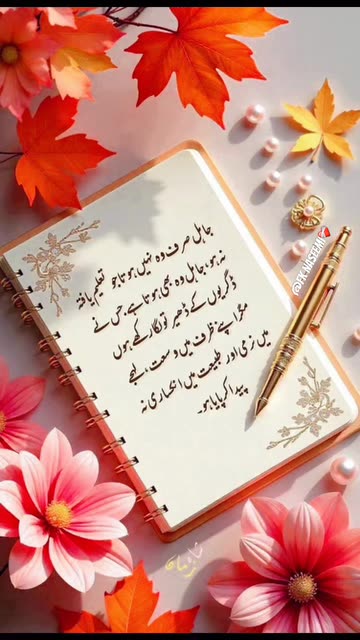 جاہل صرف وہ نہیں ہوتا جو تعلیم یافتہ
نہ ہو، جاہل وہ بھی ہوتا ہے، جس نے
ڈگریوں کے ڈھیر تو لگا رکھے ہوں
مگر اپنے ظرف میں وسعت، لہجے
میں نرمی اور طبیعت میں انکساری نہ
پیدا کر پایا ہو۔
@FK NUSEEMI